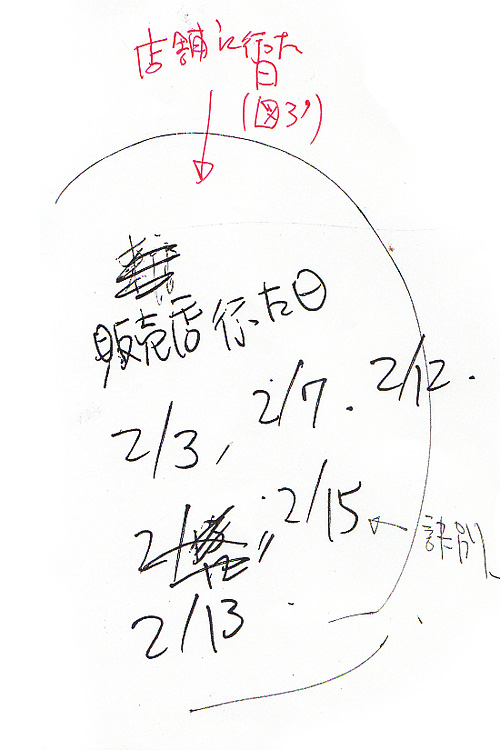 店舗に行た
日
(図3')
販売店行った日
2/3, 2/7. 2/12.
2/
2/15 ← 訣別
2/13